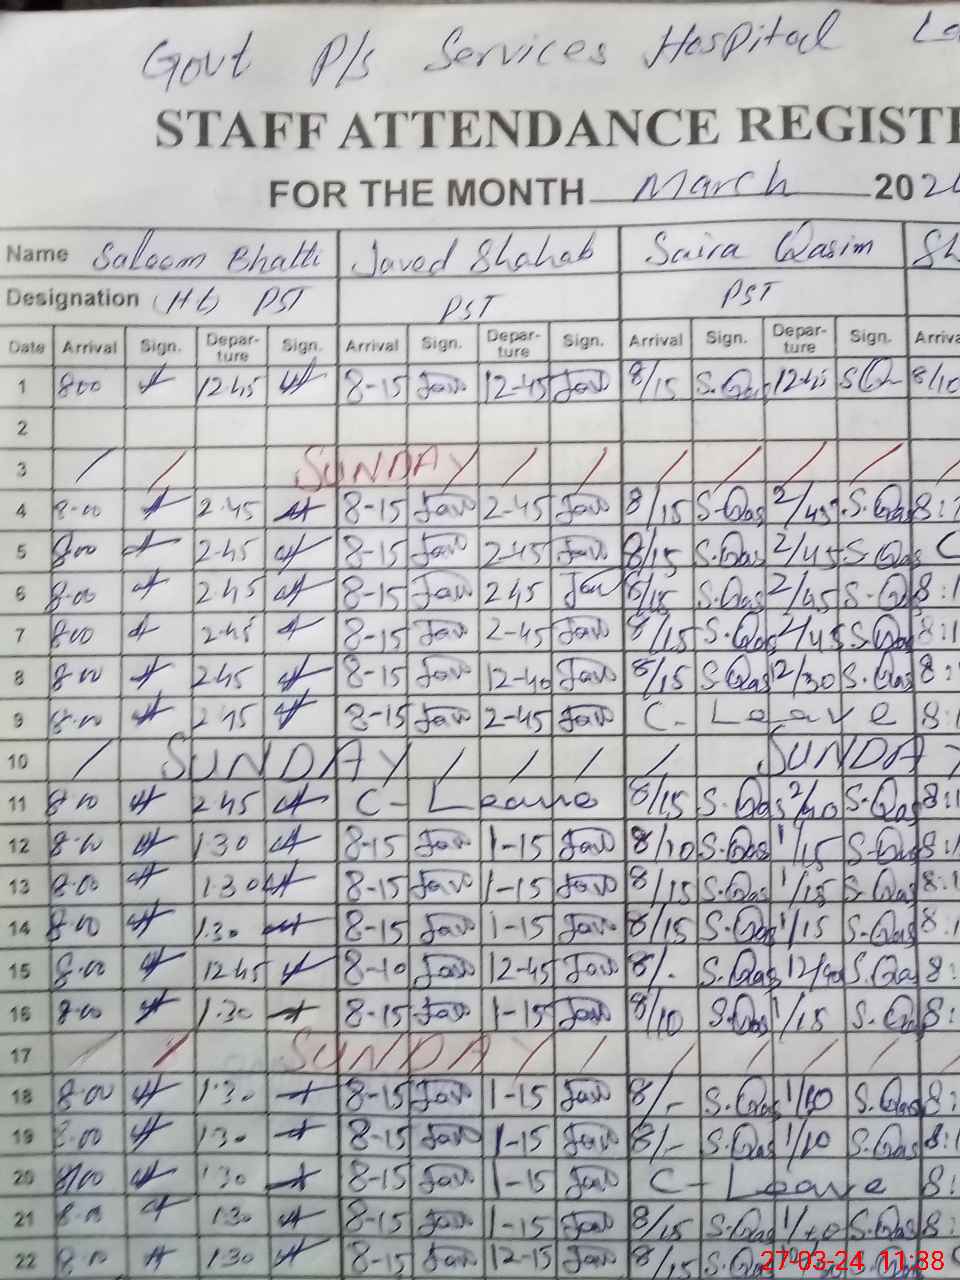 Govt P/s Services Hospital
STAFF ATTENDANCE REGISTE
FOR THE MONTH March 202
Name Saloom Bhatti Javed Shahab Saira Qasim Sh
Designation (Ht) PST PST PST
Date Arrival Sign. Depar-ture Sign. Arrival Sign. Depar-ture Sign. Arrival Sign. Depar-ture Sign. Arriva
1 800 12.45 8-15 Jav 12-45 Jav 8/15 S.Qas 12/45 SQ 8/10
2
3 / / SUNDAY / / / / / / /
4 8-00 2.45 8-15 Jav 2-45 Jav 8/15 S.Qas 2/45 S.Qas 8:
5 8.00 2.45 8-15 Jav 2-45 Jav 8/15 S.Qas 2/45 S.Qas C
6 8.00 2.45 8-15 Jav 245 Jav 8/15 S.Qas 2/45 S.Q 8:1
7 800 2.45 8-15 Jav 2-45 Jav 8/15 S.Qas 2/45 S.Qas 8:1
8 8-00 2.45 8-15 Jav 12-40 Jav 8/15 S.Qas 12/30 S.Qas 8:
9 8.00 2.45 8-15 Jav 2-45 Jav C- Leave 8:1
10 / SUNDAY / / / / SUNDAY
11 8.00 2.45 C- Leave 8/15 S.Qas 2/40 S.Qas 8:1
12 8.00 1.30 8-15 Jav 1-15 Jav 8/10 S.Qas 1/15 S.Qas 8:1
13 8.00 1.30 8-15 Jav 1-15 Jav 8/15 S.Qas 1/15 S.Qas 8:1
14 8.00 1.30 8-15 Jav 1-15 Jav 8/15 S.Qas 1/15 S.Qas 8:1
15 8.00 12.45 8-10 Jav 12-45 Jav 8/- S.Qas 12/40 S.Qas 8:
16 8.00 1.30 8-15 Jav 1-15 Jav 8/10 S.Qas 1/15 S.Qas 8:
17 / / SUNDAY / / / / / / /
18 8.00 1.30 8-15 Jav 1-15 Jav 8/- S.Qas 1/10 S.Qas 8:
19 8.00 1.30 8-15 Jav 1-15 Jav 8/- S.Qas 1/10 S.Qas 8:1
20 8/00 1.30 8-15 Jav 1-15 Jav C- Leave 8:
21 8.00 1.30 8-15 Jav 1-15 Jav 8/15 S.Qas 1/10 S.Qas 8:
22 8.00 1.30 8-15 Jav 12-15 Jav 8/15 S.Qas
27-03-24 11:38